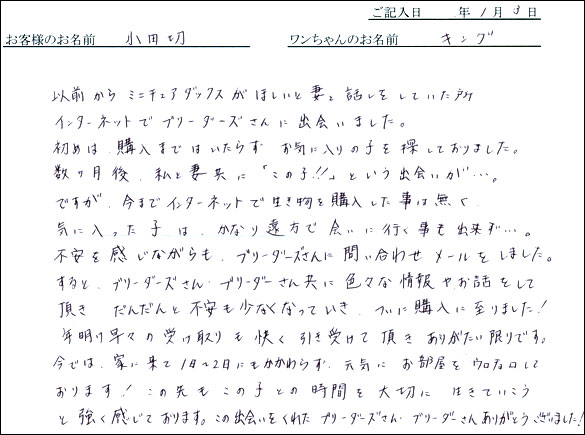 ご記入日 年1月3日
お客様のお名前 小田切 ワンちゃんのお名前 キング
以前から ミニチュアダックスが ほしいと 妻と 話しを していた所
インターネットで ブリーダーズさんに 出会いました。
初めは、購入までは いたらず お気に入りの子を 探しておりました。
数ヶ月後、私と妻共に「この子!!」という出会いが…。
ですが、今までインターネットで生き物を購入した事は無く、
気に入った子は、かなり遠方で会いに行く事も出来ず…。
不安を感じながらも、ブリーダーズさんに問い合わせメールをしました。
すると、ブリーダーズさん、ブリーダーさん共に色々な情報やお話をして
頂き だんだんと不安も少なくなっていき、ついに購入に至りました!
年明け早々の受け取りも快く引き受けて頂きありがたい限りです。
今では、家に来て1日〜2日にもかかわらず、元気にお部屋をウロウロして
おります! この先もこの子との時間を大切に 生きていこう
と強く感じております。この出会いをくれたブリーダーズさん、ブリーダーさんありがとうございました!